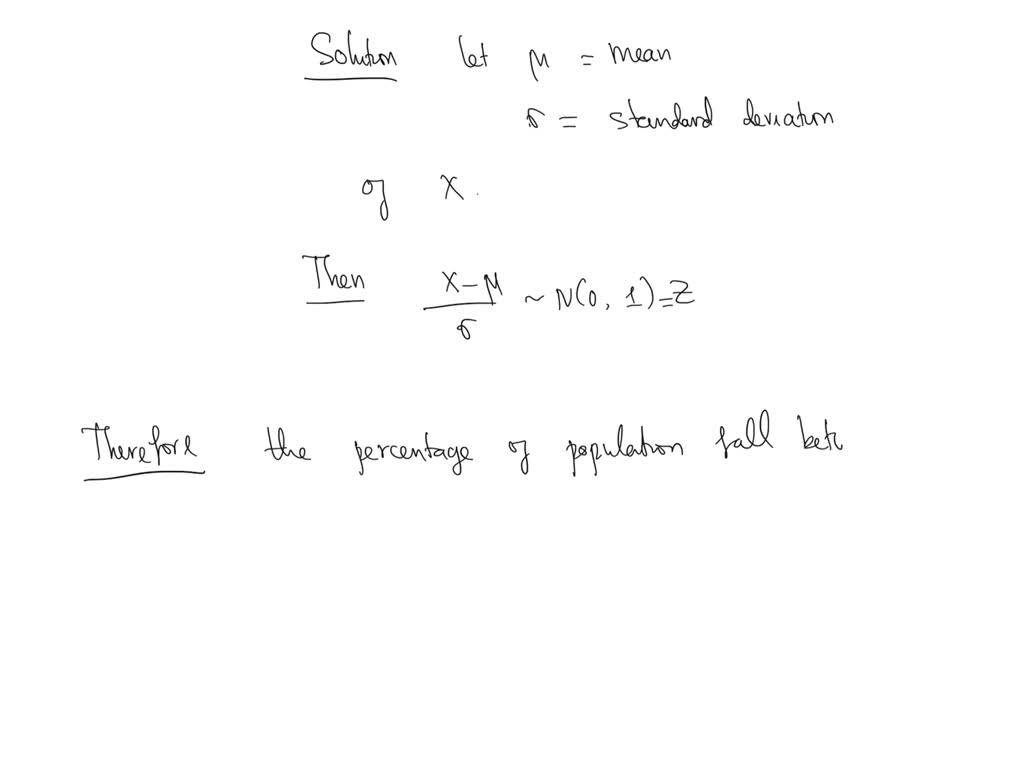 Solution let μ = mean
σ = standard deviation
of X.
Then X-μ/σ ~ N(0, 1)=Z
Therefore the percentage of population fall betc